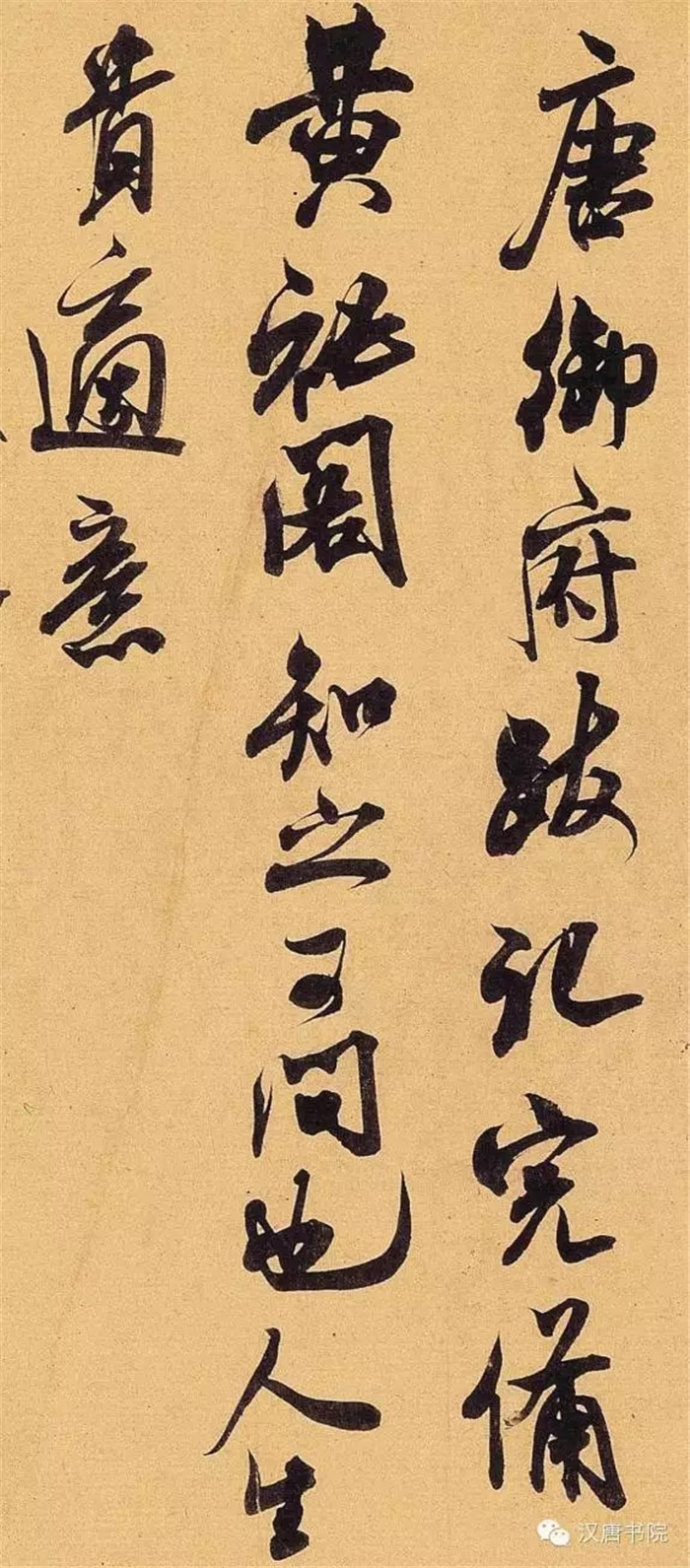 唐御府跋記完備
黄秘閣知之可問也人生
貴適意
汉唐书院